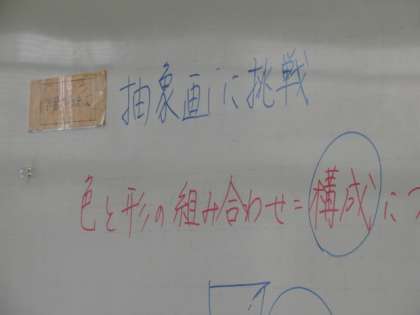 抽象画に挑戦
色と形の組み合わせ=構成につ